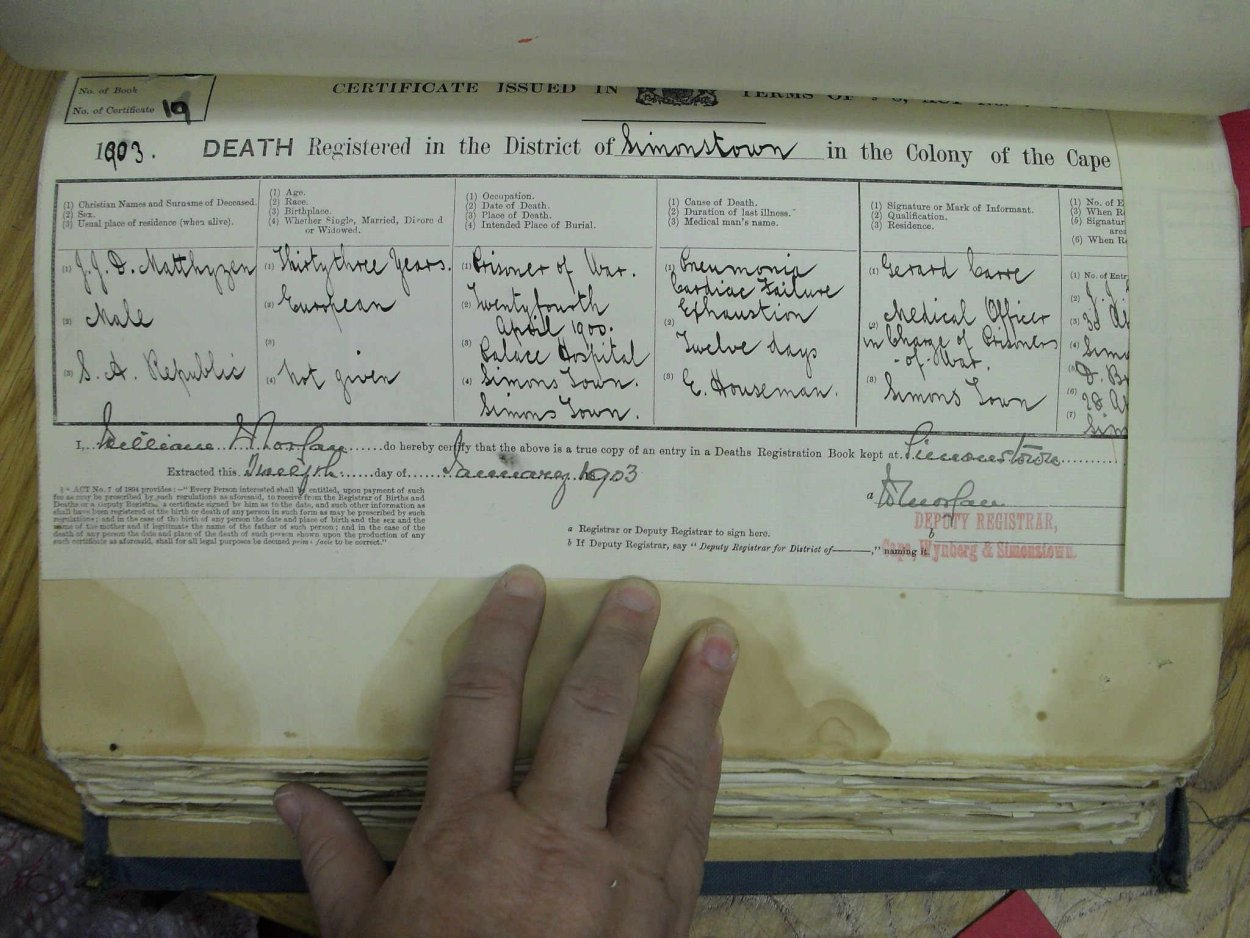 No. of Book
No. of Certificate 19
CERTIFICATE ISSUED IN TERMS OF
1903. DEATH Registered in the District of Simonstown in the Colony of the Cape
(1) Christian Names and Surname of Deceased.
(2) Sex.
(3) Usual place of residence (when alive).
(1) Age.
(2) Race.
(3) Birthplace.
(4) Whether Single, Married, Divorced
or Widowed.
(1) Occupation.
(2) Date of Death.
(3) Place of Death.
(4) Intended Place of Burial.
(1) Cause of Death.
(2) Duration of last illness.
(3) Medical man's name.
(1) Signature or Mark of Informant.
(2) Qualification.
(3) Residence.
(1) No. of E
(2) When Re
(5) Signatur
(6) When Re
(1) J.J.D. Matthyzen
(2) Male
(3) S. A. Republic
(1) Thirty three Years.
(2) European
(3)
(4) not given
(1) Prisoner of War.
(2) Twenty fourth
April 1900.
(3) Palace Hospital
(4) Simons Town.
Simons Town.
(1) Pneumonia
Cardiac Failure
Exhaustion
(2) Twelve days
(3) E. Houseman.
(1) Gerard Carre
(2) Medical Officer
in Charge of Prisoners
of War.
(3) Simons Town
(1) No. of Entr
(2) J. J.
(3) 3d
(4) Simo
(5)
(6) 28
(7) Sim
I, William Morfan do hereby certify that the above is a true copy of an entry in a Deaths Registration Book kept at Simonstown
Extracted this Twelfth day of January 1903
ACT No. 7 of 1894 provides :—"Every Person interested shall be entitled, upon payment of such
fee as may be prescribed by such regulations as aforesaid, to receive from the Registrar of Births and
Deaths or a Deputy Registrar, a certificate signed by him as to the date, and such other information as
shall have been registered of the birth or death of any person in such form as may be prescribed by such
regulations; and in the case of the birth of any person the date and place of birth and the sex and the
name of the mother and if legitimate the name of the father of such person; and in the case of the
death of any person the date and place of the death of such person shown upon the production of any
such certificate as aforesaid, shall for all legal purposes be deemed prima facie to be correct."
a Registrar or Deputy Registrar to sign here.
b If Deputy Registrar, say "Deputy Registrar for District of———," naming it.
a WMorfan
DEPUTY REGISTRAR,
b
Cape, Wynberg & Simonstown.